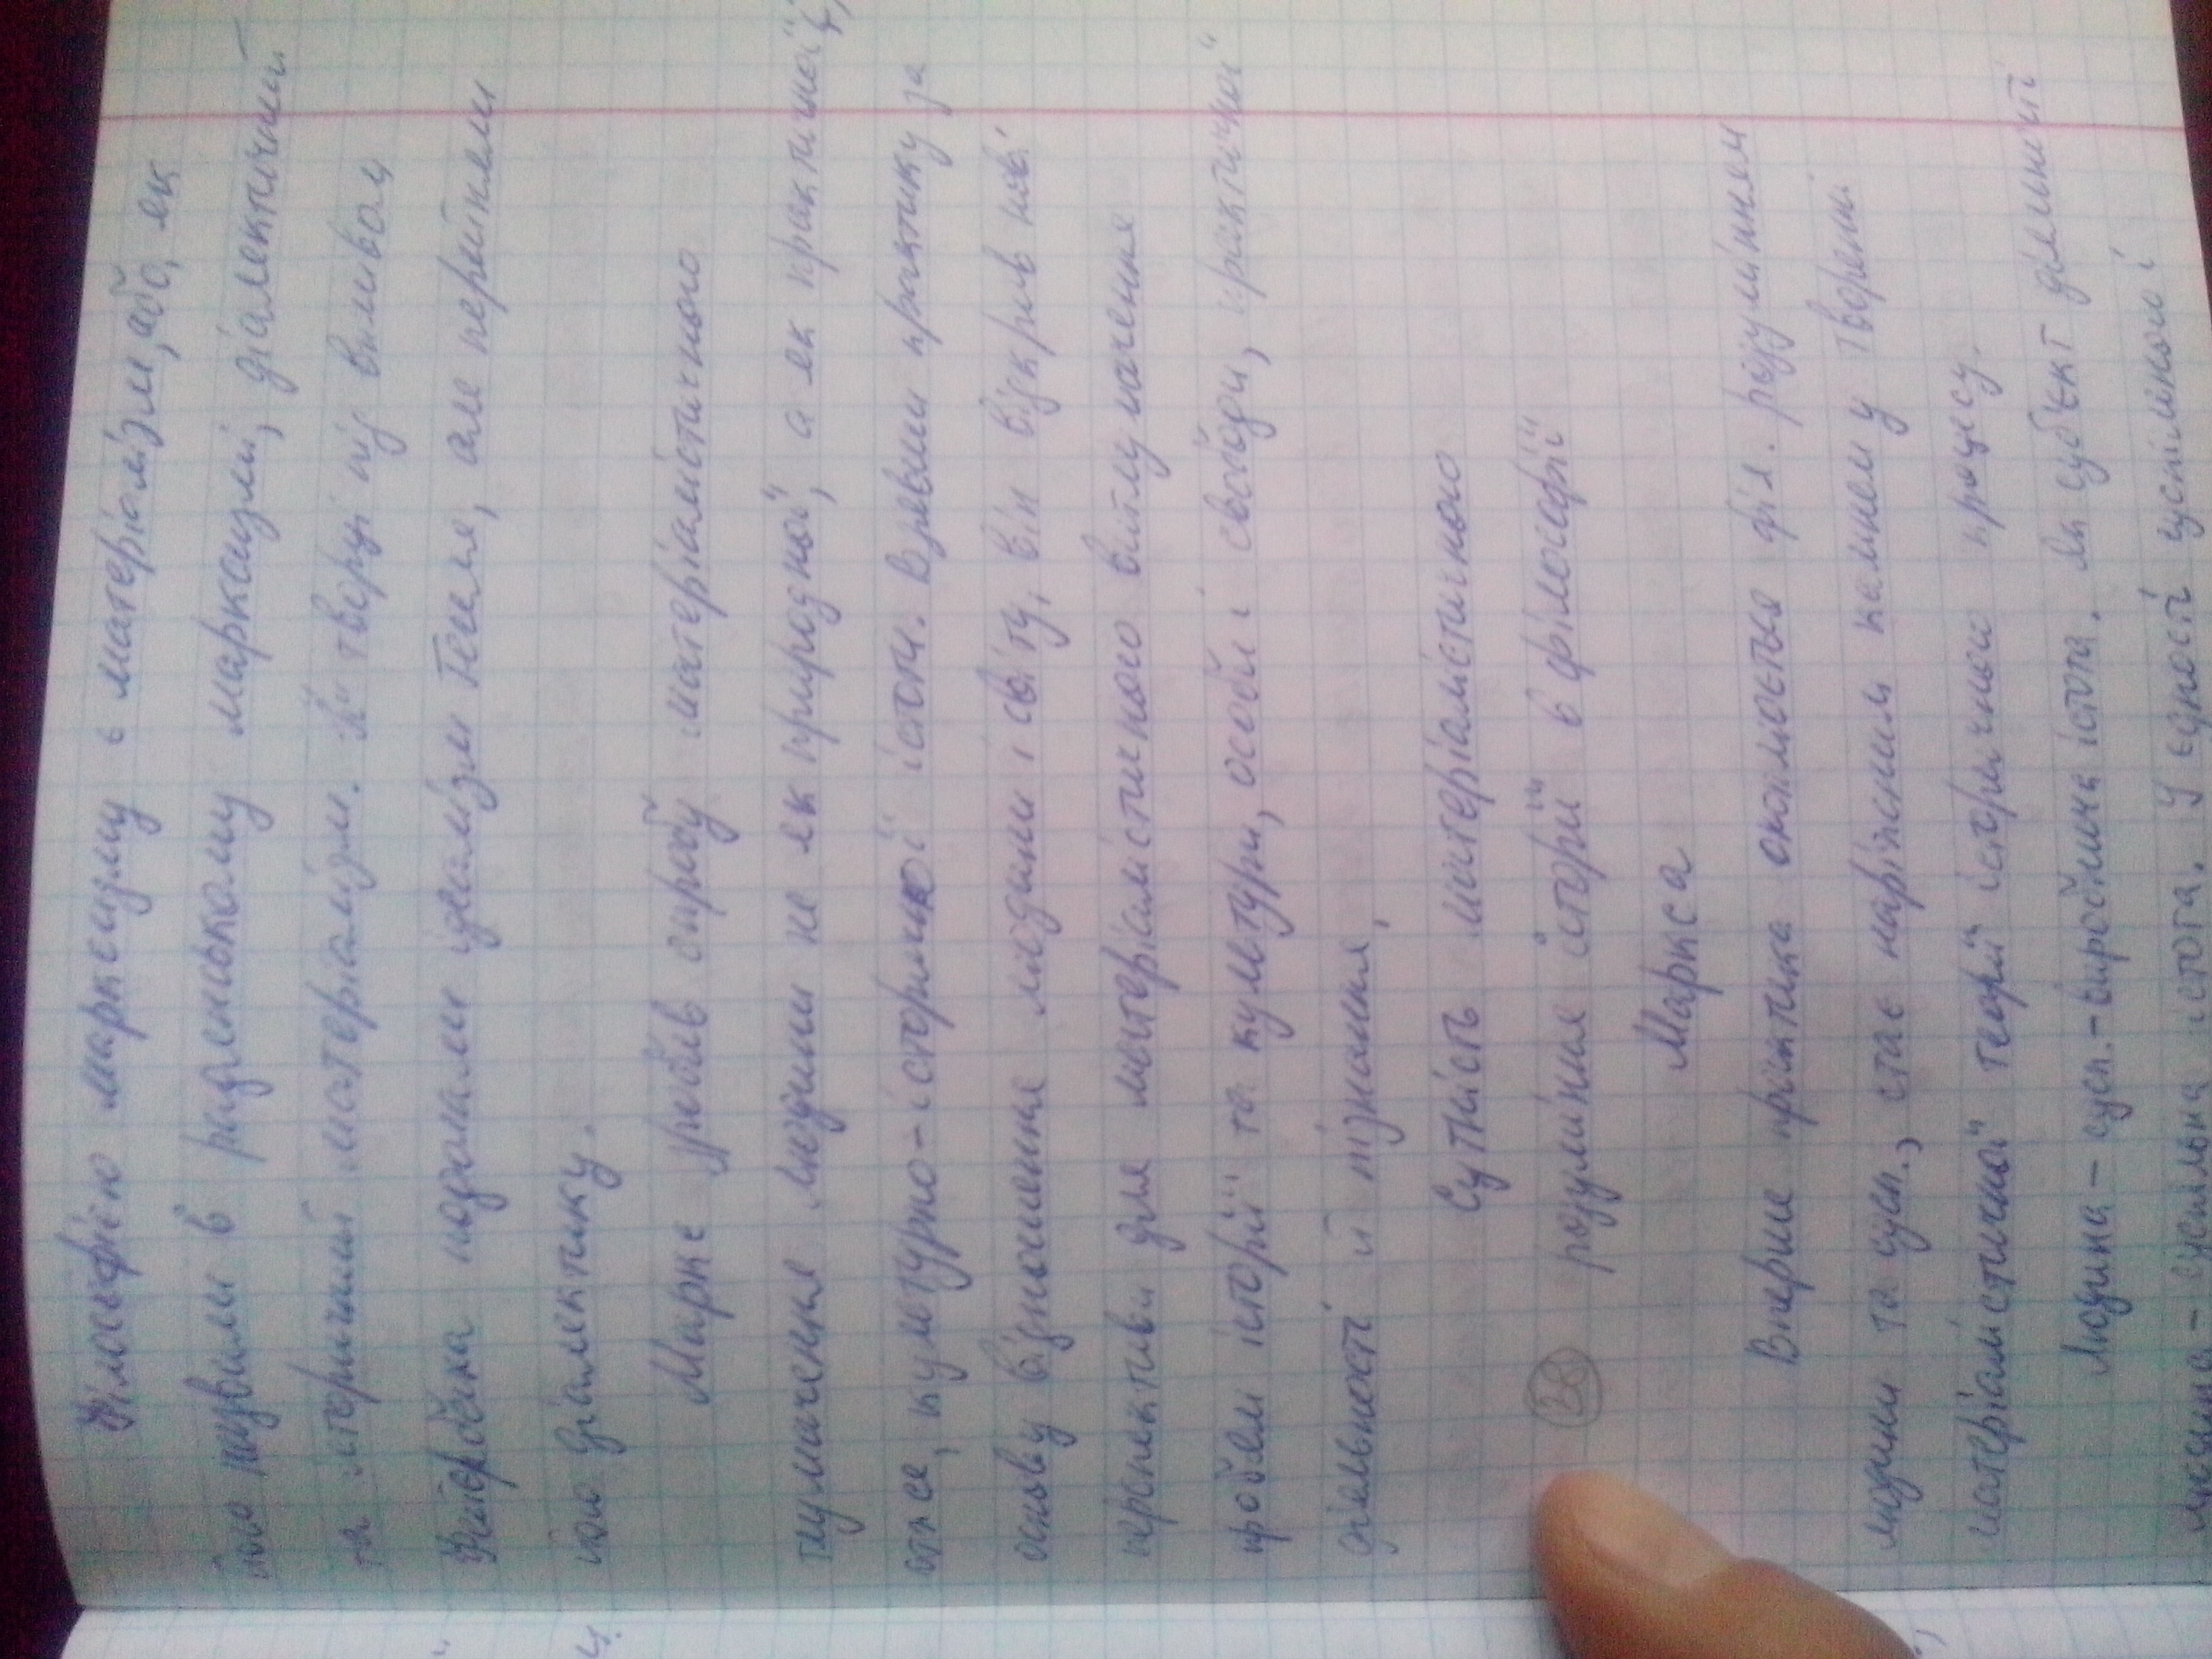 Філософією марксизму є матеріалізм, або, як
його назвали в радянському марксизмі, діалектичний
та історичний матеріалізм. Її творці під впливом
Фейєрбаха подолали ідеалізм Гегеля, але перейняли
його діалектику.
Маркс зробив спробу матеріалістичного
тлумачення людини не як природної, а як практичної,
отже, культурно-історичної істоти. Взявши практику за
основу відношення людини і світу, він відкрив нові
перспективи для матеріалістичного витлумачення
проблем історії та культури, особи і свободи, практичної
діяльності й пізнання.
Сутність матеріалістичного
38 розуміння історії в філософії
Маркса
Вперше практика охоплюється філ. розумінням
людини та сусп., стає наріжним каменем у творенні
матеріалістичної теорії історичного процесу.
Людина – сусп.-виробнича істота. суб'єкт діяльності
людина – суспільна істота. У єдності суспільного і